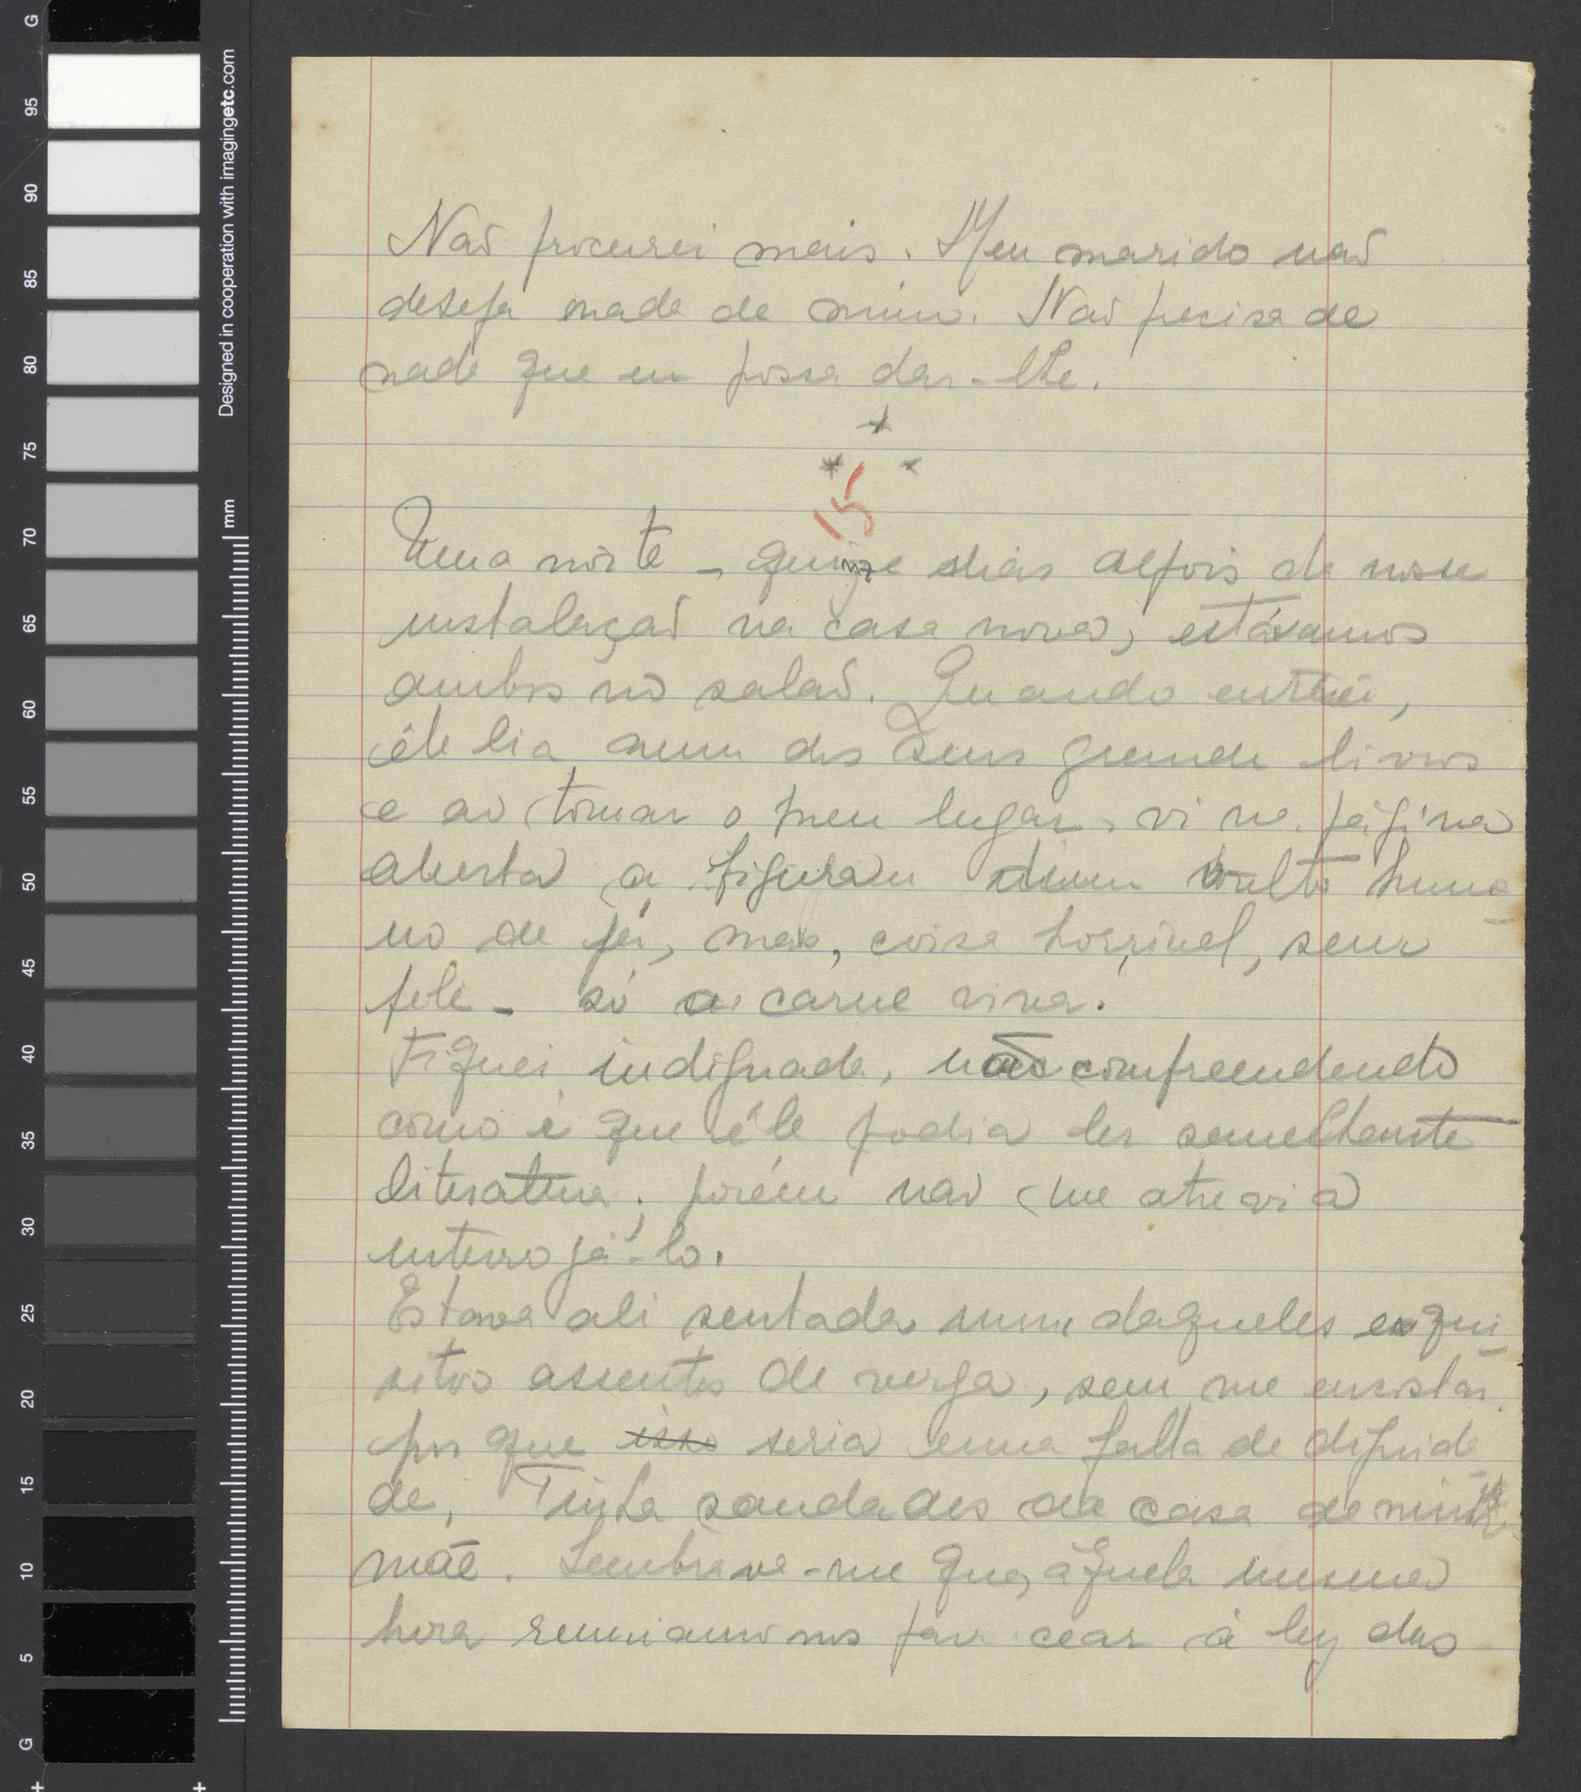 Não procurei mais. Meu marido não
deseja nada de mim. Não precisa de
nada que eu possa dar-lhe.
* * *
15
Uma noite - quinze dias depois de nossa
instalação na casa nova, estávamos
ambos no salão. Quando entrei,
êle lia num dos seus grandes livros
e ao tomar o meu lugar, vi na página
aberta a figura dum vulto huma-
no de pé, mas, coisa horrivel, sem
pele - só a carne viva.
Fiquei indignada, não compreendendo
como é que êle podia ler semelhante
literatura; porém não me atrevi a
interrogá-lo.
Estava ali sentada num daqueles esqui-
sitos assentos de verga, sem me encostar,
por que isso seria uma falta de dignida-
de. Tinha saudades da casa de minha
mãe. Lembrava-me que, àquela mesma
hora reuniamo nos para cear à luz das
G 95 90 85 80 75 70 65 60 55 50 45 40 35 30 25 20 15 10 5 G
mm
Designed in cooperation with imagingetc.com